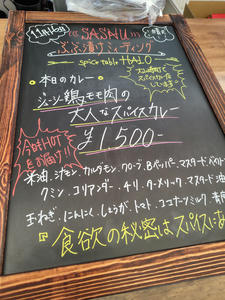 11月
SASHU
ぶぶ漬けミーティング
spice table HALO
・本日のカレー・
ジューシー鶏モモ肉の
大人なスパイスカレー
¥1,500-
今日もHOT
をお届け!!
米油、シナモン、カルダモン、クローブ、Bペッパー、マスタード、
クミン、コリアンダー、チリ、ターメリック、マスタード油
玉ねぎ、にんにく、しょうが、トマト、ココナッツミルク、
『食欲の秘密はスパイスにあ